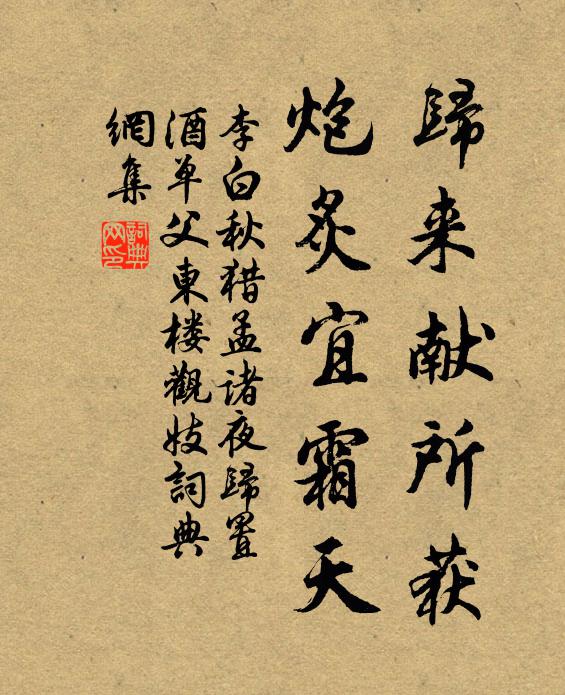 歸来献所获
炮炙宜霜天
李白秋猎孟诸夜歸置
酒单父東楼觀妓詞典
網集
詞典
网印